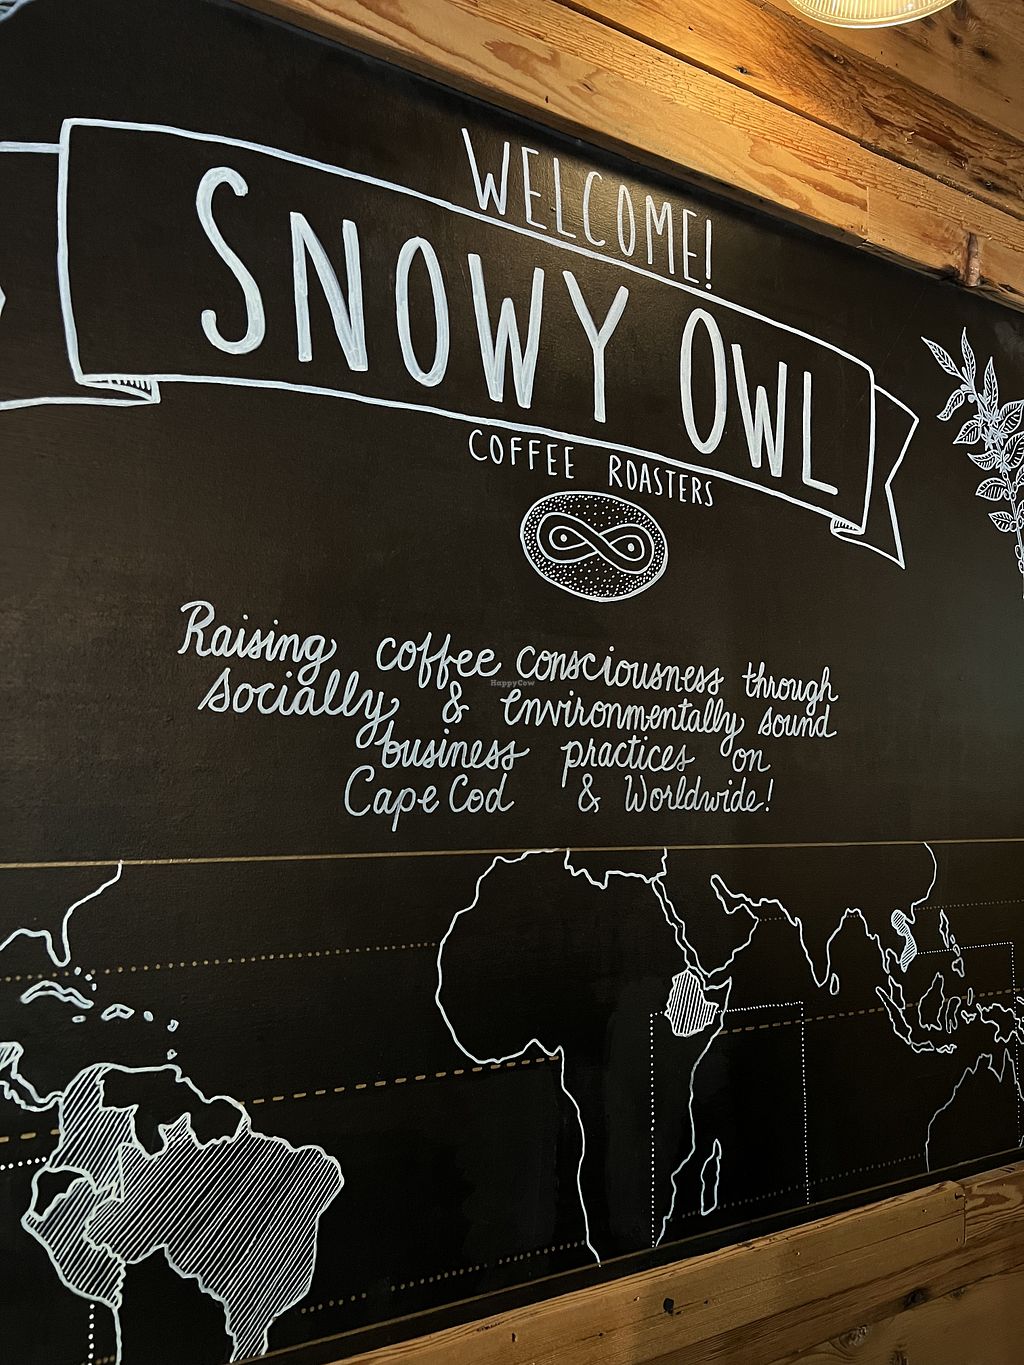 WELCOME!
SNOWY OWL
COFFEE ROASTERS
Raising coffee consciousness through
socially & environmentally sound
business practices on
Cape Cod & Worldwide!
HappyCow